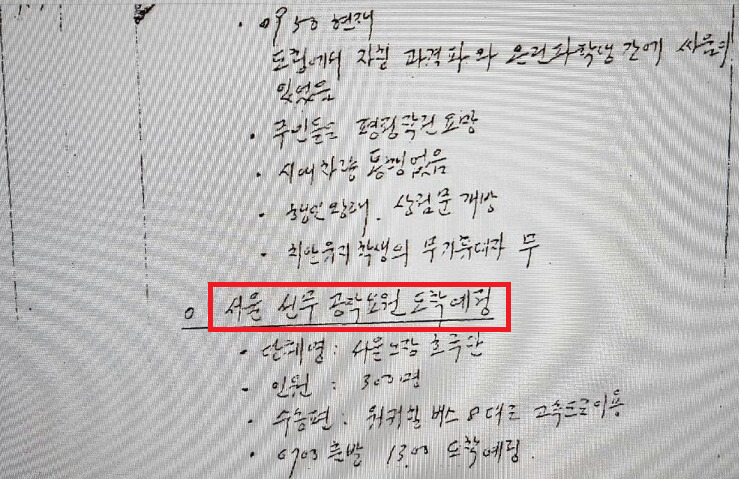 · 0950 현재
도청에서 자칭 과격파와 온건파학생간에 싸움이
있었음
· 주민들은 평정락권 요망
· 시내차량 통행없음
· 행인왕래. 상점문 개방
· 치안유지 학생의 무기휴대자 무
○ 서울 신무 공작요원 도착예정
· 단체명 :
· 인원 : 300명
· 수송편 : 워커힐 버스 8대로 고속도로이용
· 0703 출발 1300 도착예정.